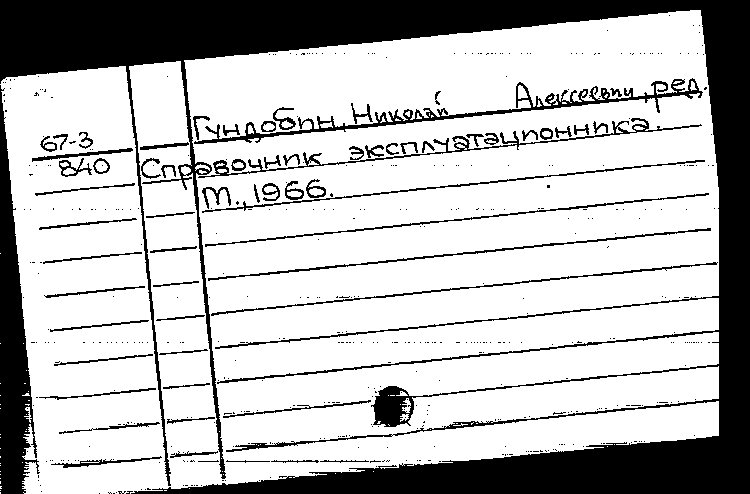 Гундобин, Николай Алексеевич, ред.
67-3
840 Справочник эксплуатационника.
М., 1966.